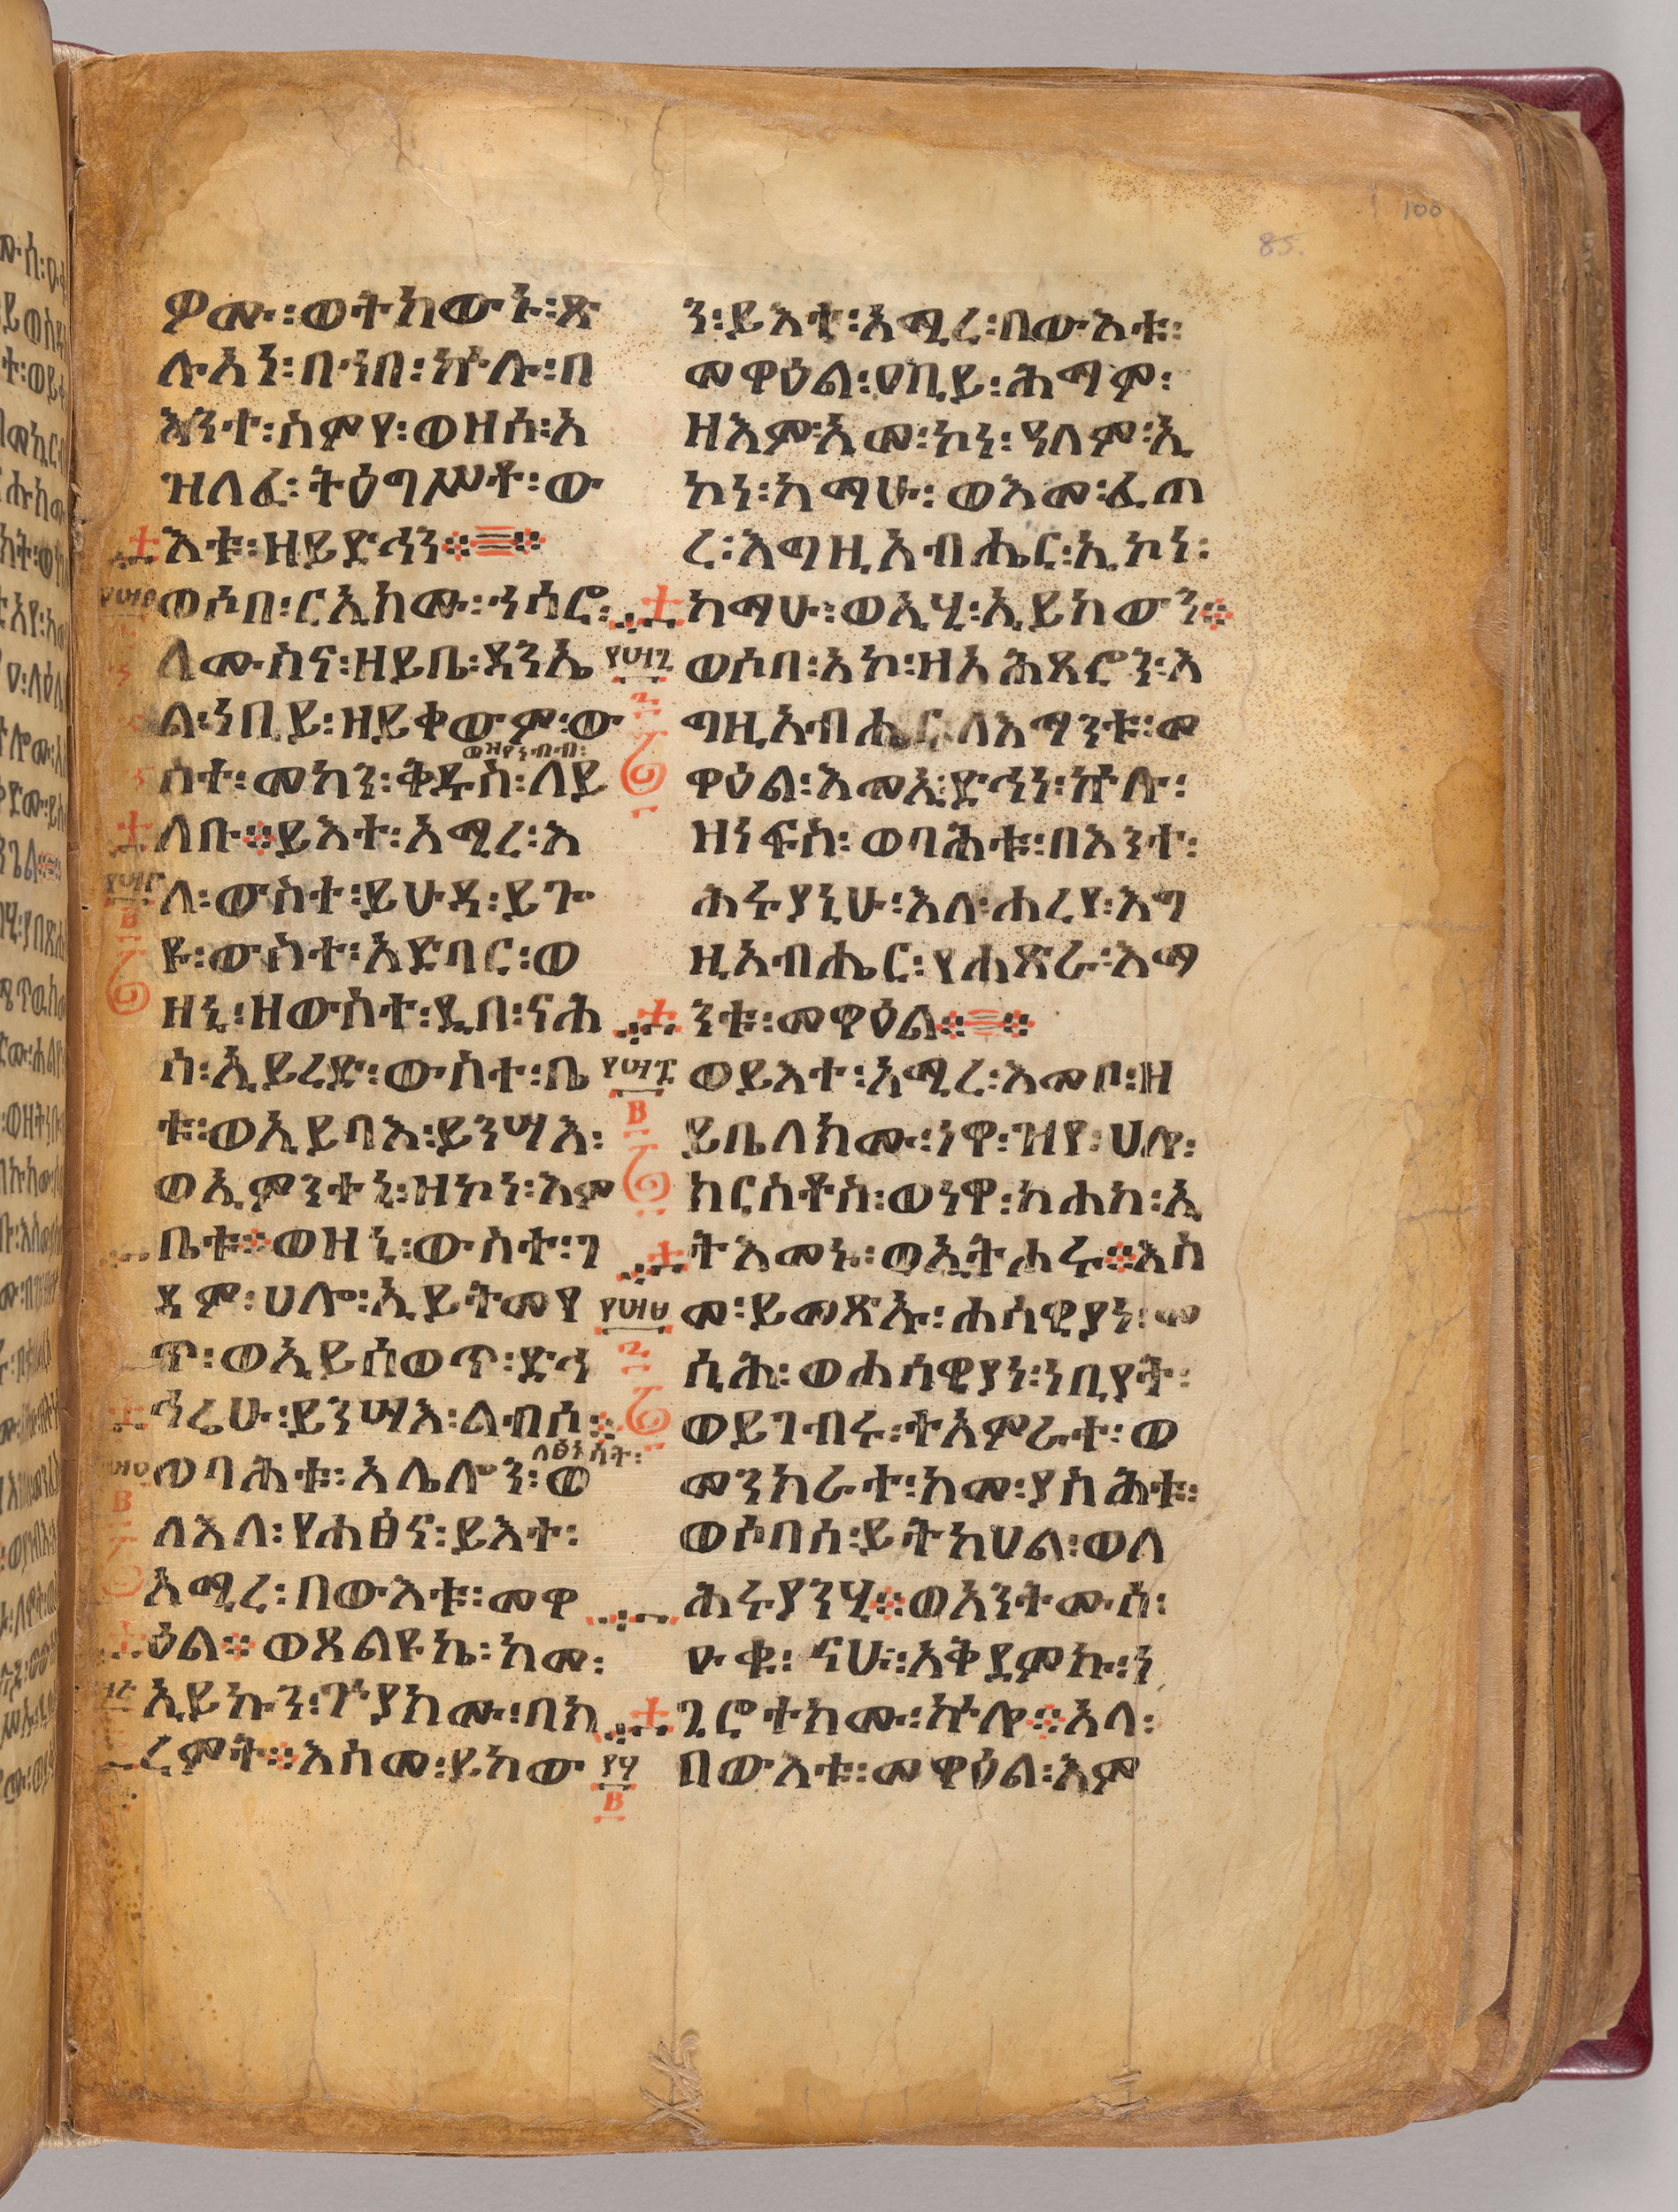 ዎሙ፡ወትከውኑ፡ጽ
ሉአነ፡በኀበ፡ኵሉ፡በ
እንተ፡ስምየ፡ወዘሰ፡አ
ዝለፈ፡ትዕግሥቶ፡ው
እቱ፡ዘይድኅን፨
ወሶበ፡ርኢክሙ፡ኀሳሮ፡
ለሙስና፡ዘይቤ፡ዳንኤ
ል፡ነቢይ፡ዘይቀውም፡ው
ወዘያነብብ፡
ስተ፡መካን፡ቅዱስ፡ለይ
ለቡ፨ይእተ፡አሚረ፡እ
ለ፡ውስተ፡ይሁዳ፡ይጐ
ዩ፡ውስተ፡አድባር፡ወ
ዘኒ፡ዘውስተ፡ዲበ፡ናሕ
ስ፡ኢይረድ፡ውስተ፡ቤ
ቱ፡ወኢይባእ፡ይንሣእ፡
ወኢምንተኒ፡ዘኮነ፡እም
ቤቱ፨ወዘኒ፡ውስተ፡ገ
ዳም፡ሀሎ፡ኢይትመየ
ጥ፡ወኢይሰወጥ፡ድኅ
ኅሬሁ፡ይንሣእ፡ልብሶ፨
ለፅኑሳት፡
ወባሕቱ፡አሌሎን፡ወ
ለእለ፡የሐፅና፡ይእተ፡
አሚረ፡በውእቱ፡መዋ
ዕል፨ወጸልዩኬ፡ከመ፡
ኢይኩን፡ጕያክሙ፡በክ
ረምት፨እስመ፡ይከው
ን፡ይእተ፡አሚረ፡በውእቱ፡
መዋዕል፡ዐቢይ፡ሕማም፡
ዘእምአመ፡ኮነ፡ዓለም፡ኢ
ኮነ፡ከማሁ፡ወእመ፡ፈጠ
ረ፡እግዚአብሔር፡ኢኮነ፡
ከማሁ፡ወኢሂ፡ኢይከውን፨
ወሶበ፡አኮ፡ዘአሕጸሮን፡እ
ግዚአብሔር፡ለእማንቱ፡መ
ዋዕል፡እመኢድኅነ፡ኵሉ፡
ዘነፍስ፡ወባሕቱ፡በእንተ፡
ሕሩያኒሁ፡እለ፡ሐረየ፡እግ
ዚአብሔር፡የሐጽራ፡እማ
ንቱ፡መዋዕል፨
ወይእተ፡አሚረ፡እመቦ፡ዘ
ይቤለክሙ፡ነዋ፡ዝየ፡ሀሎ፡
ክርስቶስ፡ወነዋ፡ከሐከ፡ኢ
ትእመኑ፡ወኢትሐሩ፨እስ
መ፡ይመጽኡ፡ሐሳዊያነ፡መ
ሲሕ፡ወሐሳዊያነ፡ነቢያት፡
ወይገብሩ፡ተአምራተ፡ወ
መንክራተ፡ከመ፡ያስሕቱ፡
ወሶበሰ፡ይትከሀል፡ወለ
ሕሩያንሂ፨ወአንትሙሰ፡
ዑቁ፡ናሁ፡አቅደምኩ፡ነ
ጊሮተክሙ፡ኵሎ፨አላ፡
በውእቱ፡መዋዕል፡እም